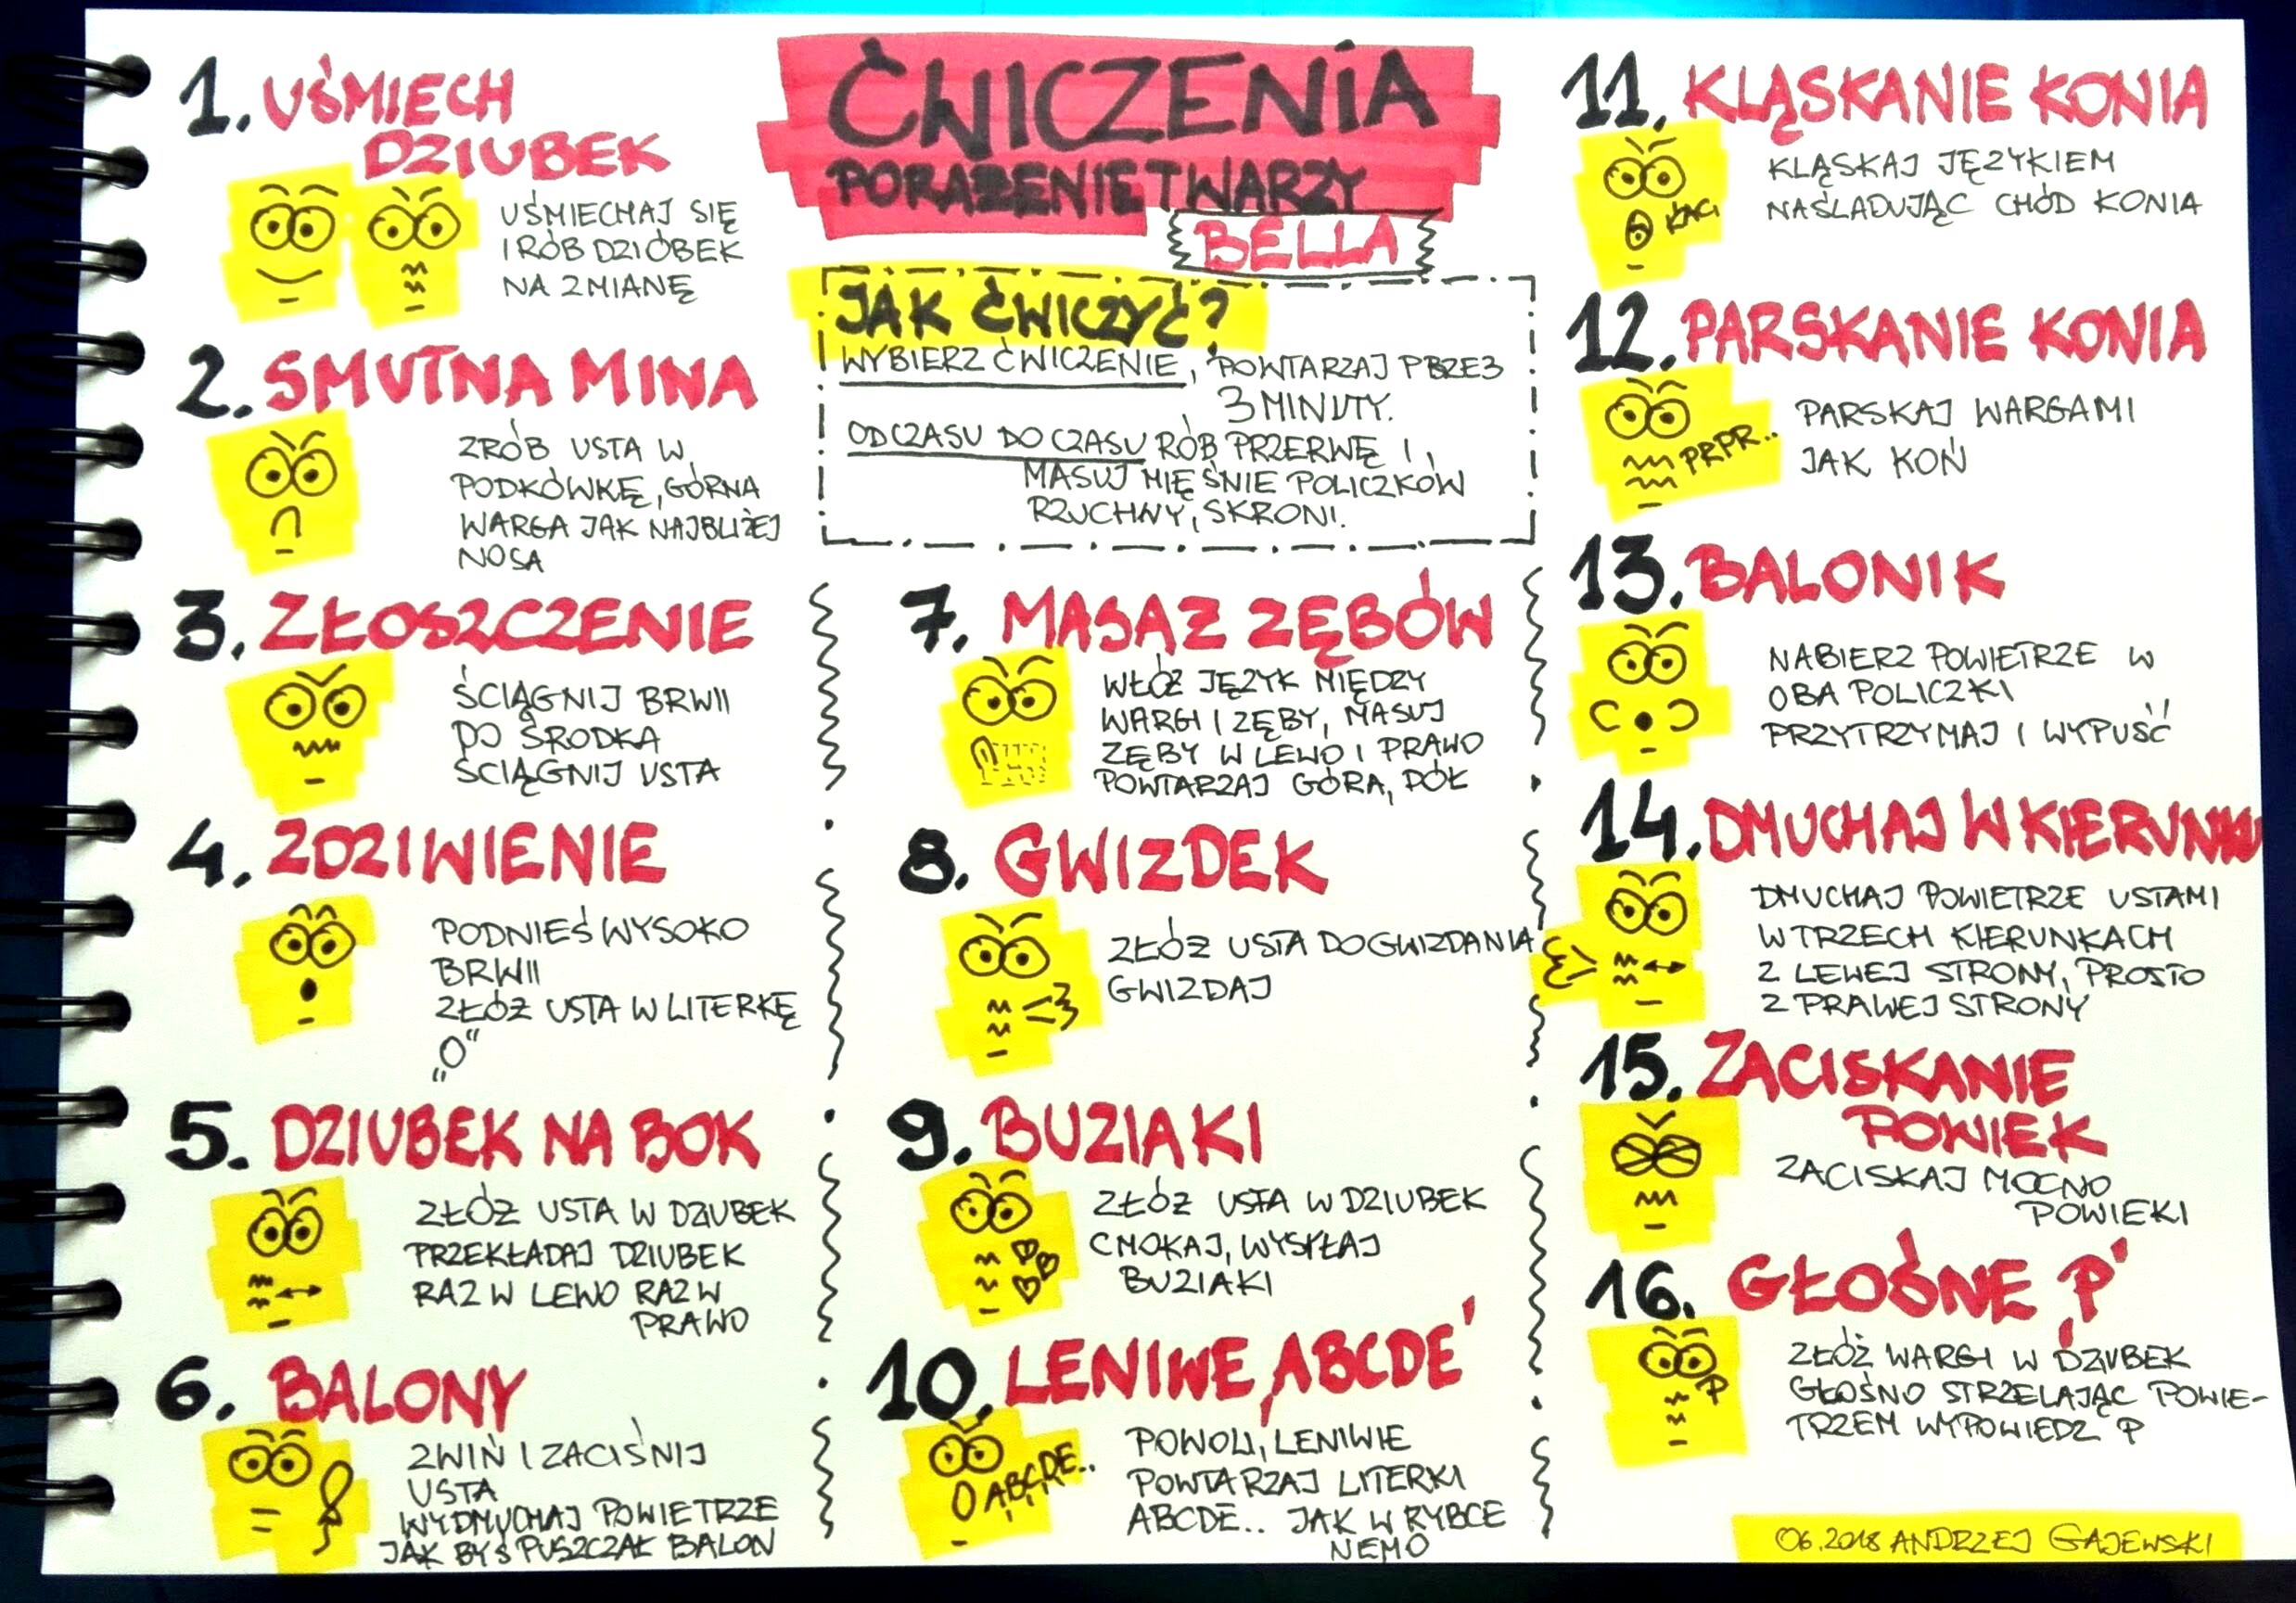 ĆWICZENIA
PORAŻENIE TWARZY
BELLA
JAK ĆWICZYĆ?
WYBIERZ ĆWICZENIE, POWTARZAJ PRZEZ
3 MINUTY.
OD CZASU DO CZASU RÓB PRZERWĘ I
MASUJ MIĘŚNIE POLICZKÓW
RZUCHWY, SKRONI.
1. UŚMIECH
DZIUBEK
UŚMIECHAJ SIĘ
I RÓB DZIÓBEK
NA ZMIANĘ
2. SMUTNA MINA
ZRÓB USTA W
PODKÓWKĘ, GÓRNA
WARGA JAK NAJBLIŻEJ
NOSA
3. ZŁOSZCZENIE
ŚCIĄGNIJ BRWII
DO ŚRODKA
ŚCIĄGNIJ USTA
4. ZDZIWIENIE
PODNIEŚ WYSOKO
BRWII
ZŁÓŻ USTA W LITERKĘ
„O“
5. DZIUBEK NA BOK
ZŁÓŻ USTA W DZIUBEK
PRZEKŁADAJ DZIUBEK
RAZ W LEWO RAZ W
PRAWO
6. BALONY
ZWIŃ I ZACIŚNIJ
USTA
WYDMUCHAJ POWIETRZE
JAK BYŚ PUSZCZAŁ BALON
7. MASAŻ ZĘBÓW
WŁÓŻ JĘZYK MIĘDZY
WARGI I ZĘBY, MASUJ
ZĘBY W LEWO I PRAWO
POWTARZAJ GÓRA, DÓŁ
8. GWIZDEK
ZŁÓŻ USTA DO GWIZDANIA
GWIZDAJ
9. BUZIAKI
ZŁÓŻ USTA W DZIUBEK
CMOKAJ, WYSYŁAJ
BUZIAKI
10. LENIWE ,ABCDE'
ABCDE..
POWOLI, LENIWIE
POWTARZAJ LITERKI
ABCDE.. JAK W RYBCE
NEMO
11. KLĄSKANIE KONIA
KLĄSKAJ JĘZYKIEM
NAŚLADUJĄC CHÓD KONIA
12. PARSKANIE KONIA
PRPR..
PARSKAJ WARGAMI
JAK KOŃ
13. BALONIK
NABIERZ POWIETRZE W
OBA POLICZKI
PRZYTRZYMAJ I WYPUŚĆ
14. DMUCHAJ W KIERUNKU
DMUCHAJ POWIETRZE USTAMI
W TRZECH KIERUNKACH
Z LEWEJ STRONY, PROSTO
Z PRAWEJ STRONY
15. ZACISKANIE
POWIEK
ZACISKAJ MOCNO
POWIEKI
16. GŁOŚNE ,P'
P
ZŁÓŻ WARGI W DZIUBEK
GŁOŚNO STRZELAJĄC POWIE-
TRZEM WYPOWIEDZ P
06.2018 ANDRZEJ GAJEWSKI